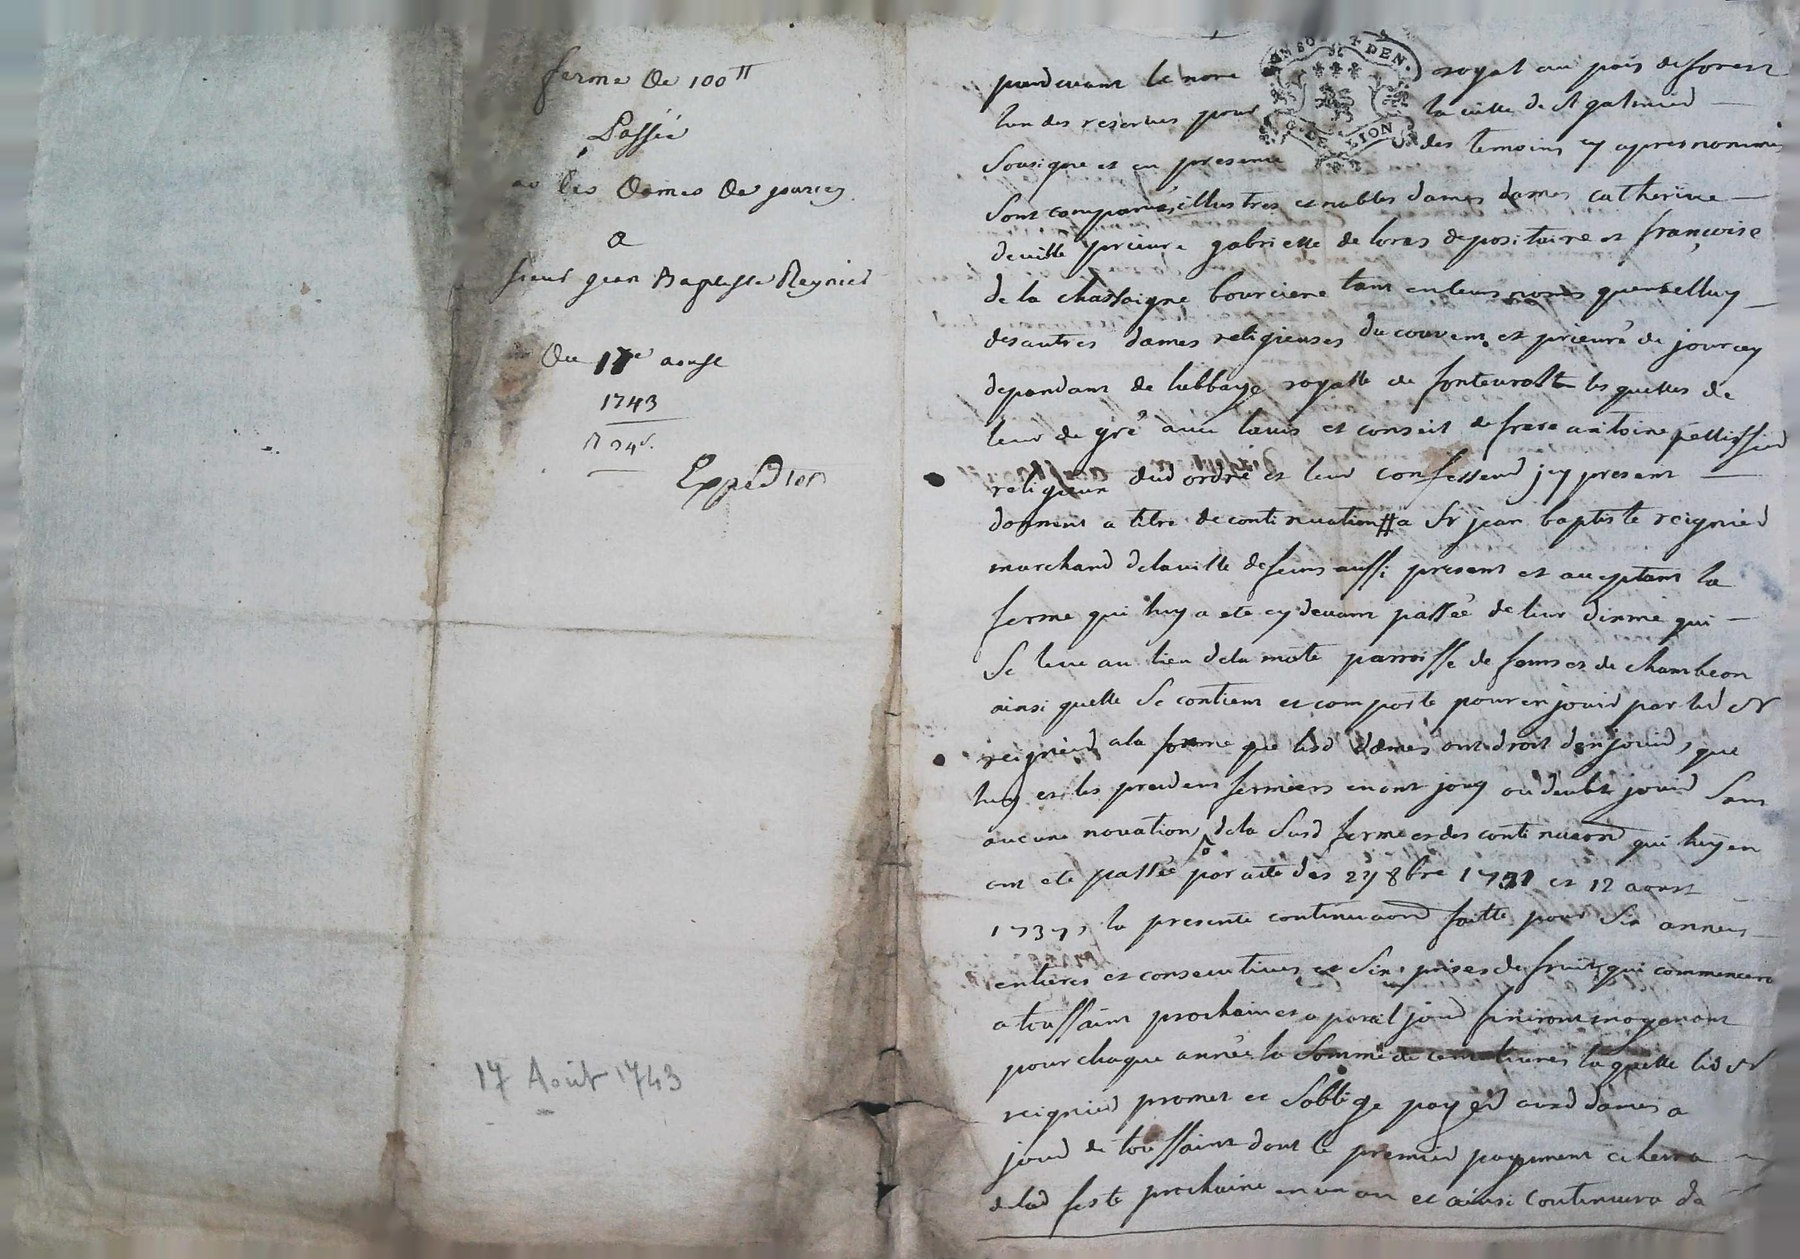 ferme de 100ll
Passée
les Dames de jourcey
a
sieur jean Baptiste Reynier
Du 17e aoust
1743
Expedier
17 Août 1743
DEN.
G. DE LION
pardevant le nore royal au pais de forest
lun des reservés pour la ville de st galmied
Sousigné et en presence des temoins cy apres nommés
Sont comparües illustres et nobles dames dames catherine
deville prieure gabrielle de loras depositaire et françoise
de la chassaigne bourciere tant en leurs noms quen celluy
des autres dames religieuses du couvent et prieuré de jourcey
dependant de labbaye royalle de fonteurolt les quelles de
leur de gré avec lavis et conseil de frere antoine pellissier
religieux dud ordre et leur confesseur jcy present
donnent a titre de continuation # a Sr jean baptiste reignied
marchand de la ville de feurs aussi present et acceptant la
ferme qui luy a ete cy devant passée de leur dixme qui
Se leve au lieu de la mote parroisse de feurs et de chambeon
ainsi quelle Se contient et comporte pour en jouir par led Sr
reignied a la forme que lesd dames ont droit den jouir, que
luy et les precedens fermiers en ont jouy ou deubt jouir Sans
aucune novation de la Susd ferme et des continuaons qui luy en
ont ete passée par acte des 27 8bre 1731 et 12 aoust
1737, la presente continuaon faitte pour Six années
entieres et consecutives et Six prises de fruits qui commencera
a toussaint prochain et a pareil jour finiront moyenant
pour chaque année la Somme de cent livres laquelle led Sr
reignied promet et Soblige payer ausd dames a
jour de toussaint dont le premier payement echerra
de lad feste prochaine en un an et ainsi continuera de